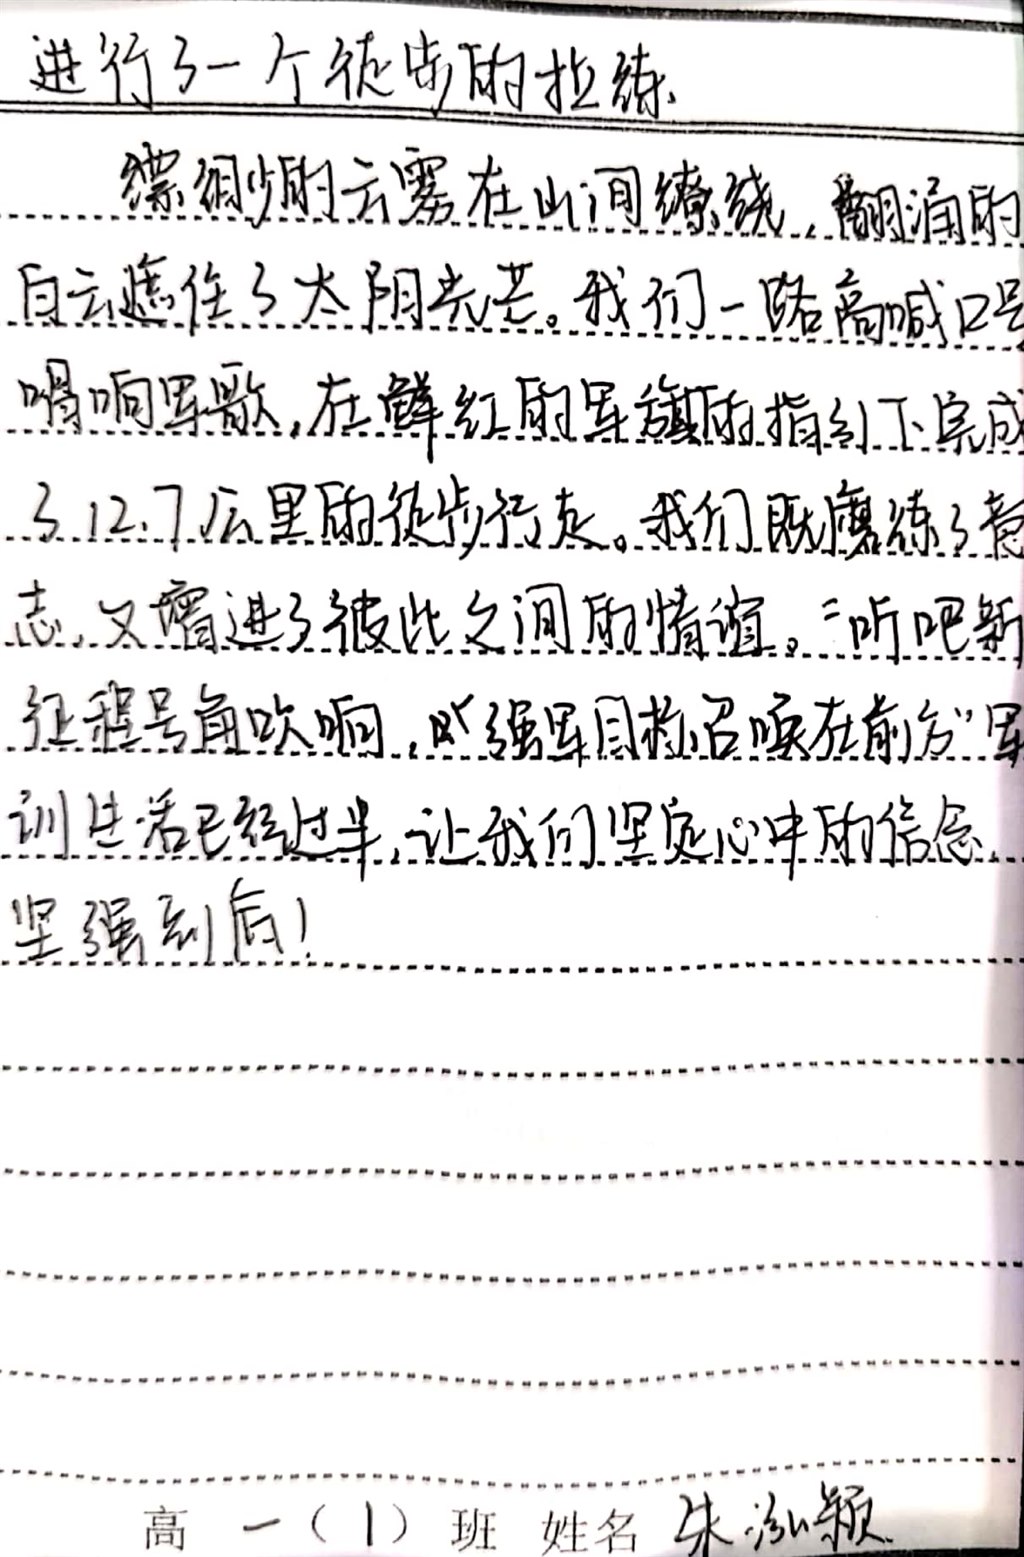 进行了一个徒步的拉练
缥缈的云雾在山间缭绕，翻涌的
白云遮住了太阳光芒。我们一路高喊口号
唱响军歌，在鲜红的军旗的指引下完成
了12.7公里的徒步行走。我们既磨练了意
志，又增进了彼此之间的情谊。“听吧新
征程号角吹响，“强军目标召唤在前方”军
训生活已经过半，让我们坚定心中的信念，
坚强到后！
高一（1）班 姓名 朱泓颖